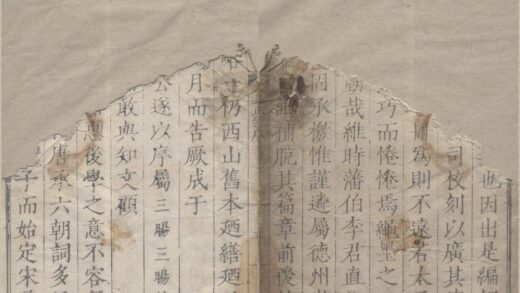 也因出是編
司校刻以廣其
爲則不遠若太
巧而惓惓焉繩墨之
哉維時藩伯李君直
承檄惟謹遂屬德州
補脫其篇章前後
士仍西山舊本廼繕廼
月而告厥成于
公遂以序屬三暘三暘
敢與知文顧
惠後學之意不容
唐承六朝詞多
子而始定宋